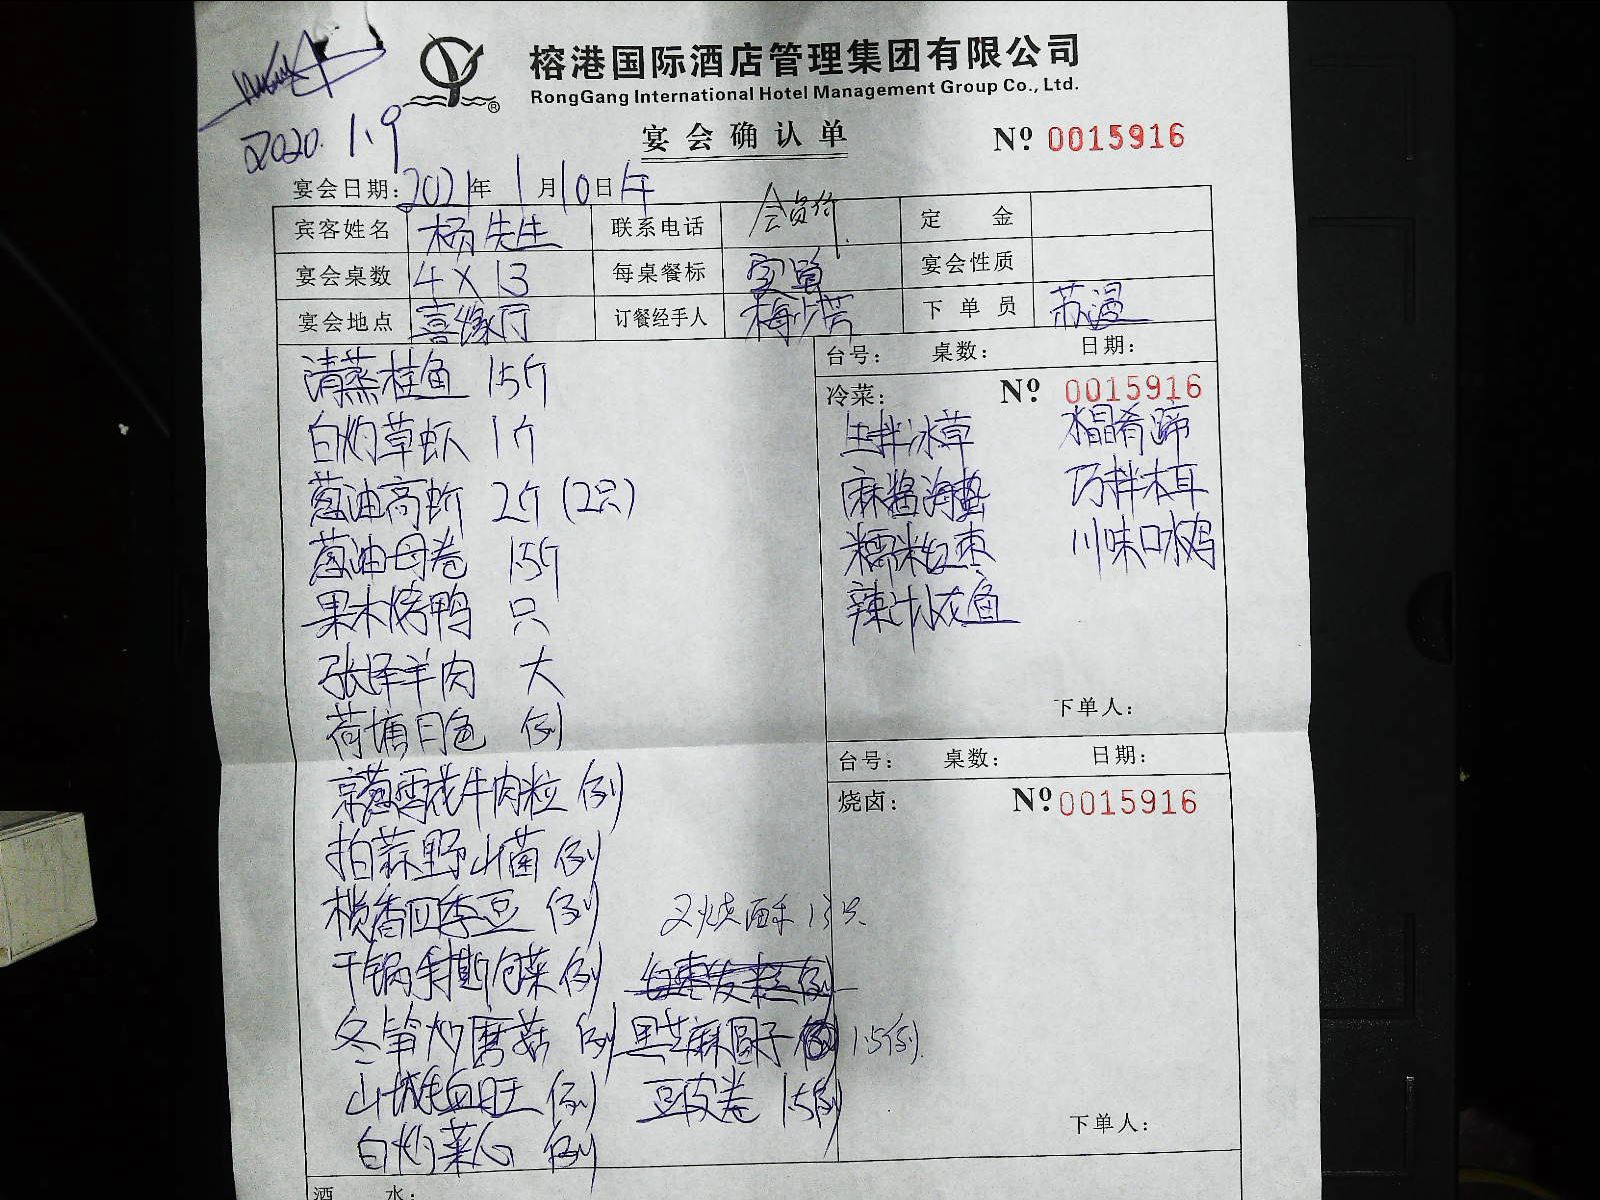 榕港国际酒店管理集团有限公司
RongGang International Hotel Management Group Co., Ltd.
®
2020. 1.9
宴会确认单
Nº 0015916
宴会日期: 2021年 1月10日 午
宾客姓名 杨先生 联系电话 会员价 定金
宴会桌数 4×13 每桌餐标 实单 宴会性质
宴会地点 喜缘厅 订餐经手人 梅少芳 下单员 苏漫
台号: 桌数: 日期:
冷菜: Nº 0015916
生拌冰草 水晶肴蹄
麻酱海蜇 巧拌木耳
糯米红枣 川味口水鸡
辣汁小龙鱼
下单人:
清蒸桂鱼 1.5斤
白灼草虾 1斤
葱油高虾 2斤 (2只)
葱油母卷 1.5斤
果木烤鸭 只
张泽羊肉 大
荷塘月色 例
京葱雪花牛肉粒 例
拍蒜野山菌 例
榄香四季豆 例
干锅手撕包菜 例
冬笋炒蘑菇 例
山城毛血旺 例
白灼菜心 例
叉烧酥 13只
黑芝麻圆子 1.5例.
豆皮卷 1.5例
台号: 桌数: 日期:
烧卤: Nº 0015916
下单人:
酒水: